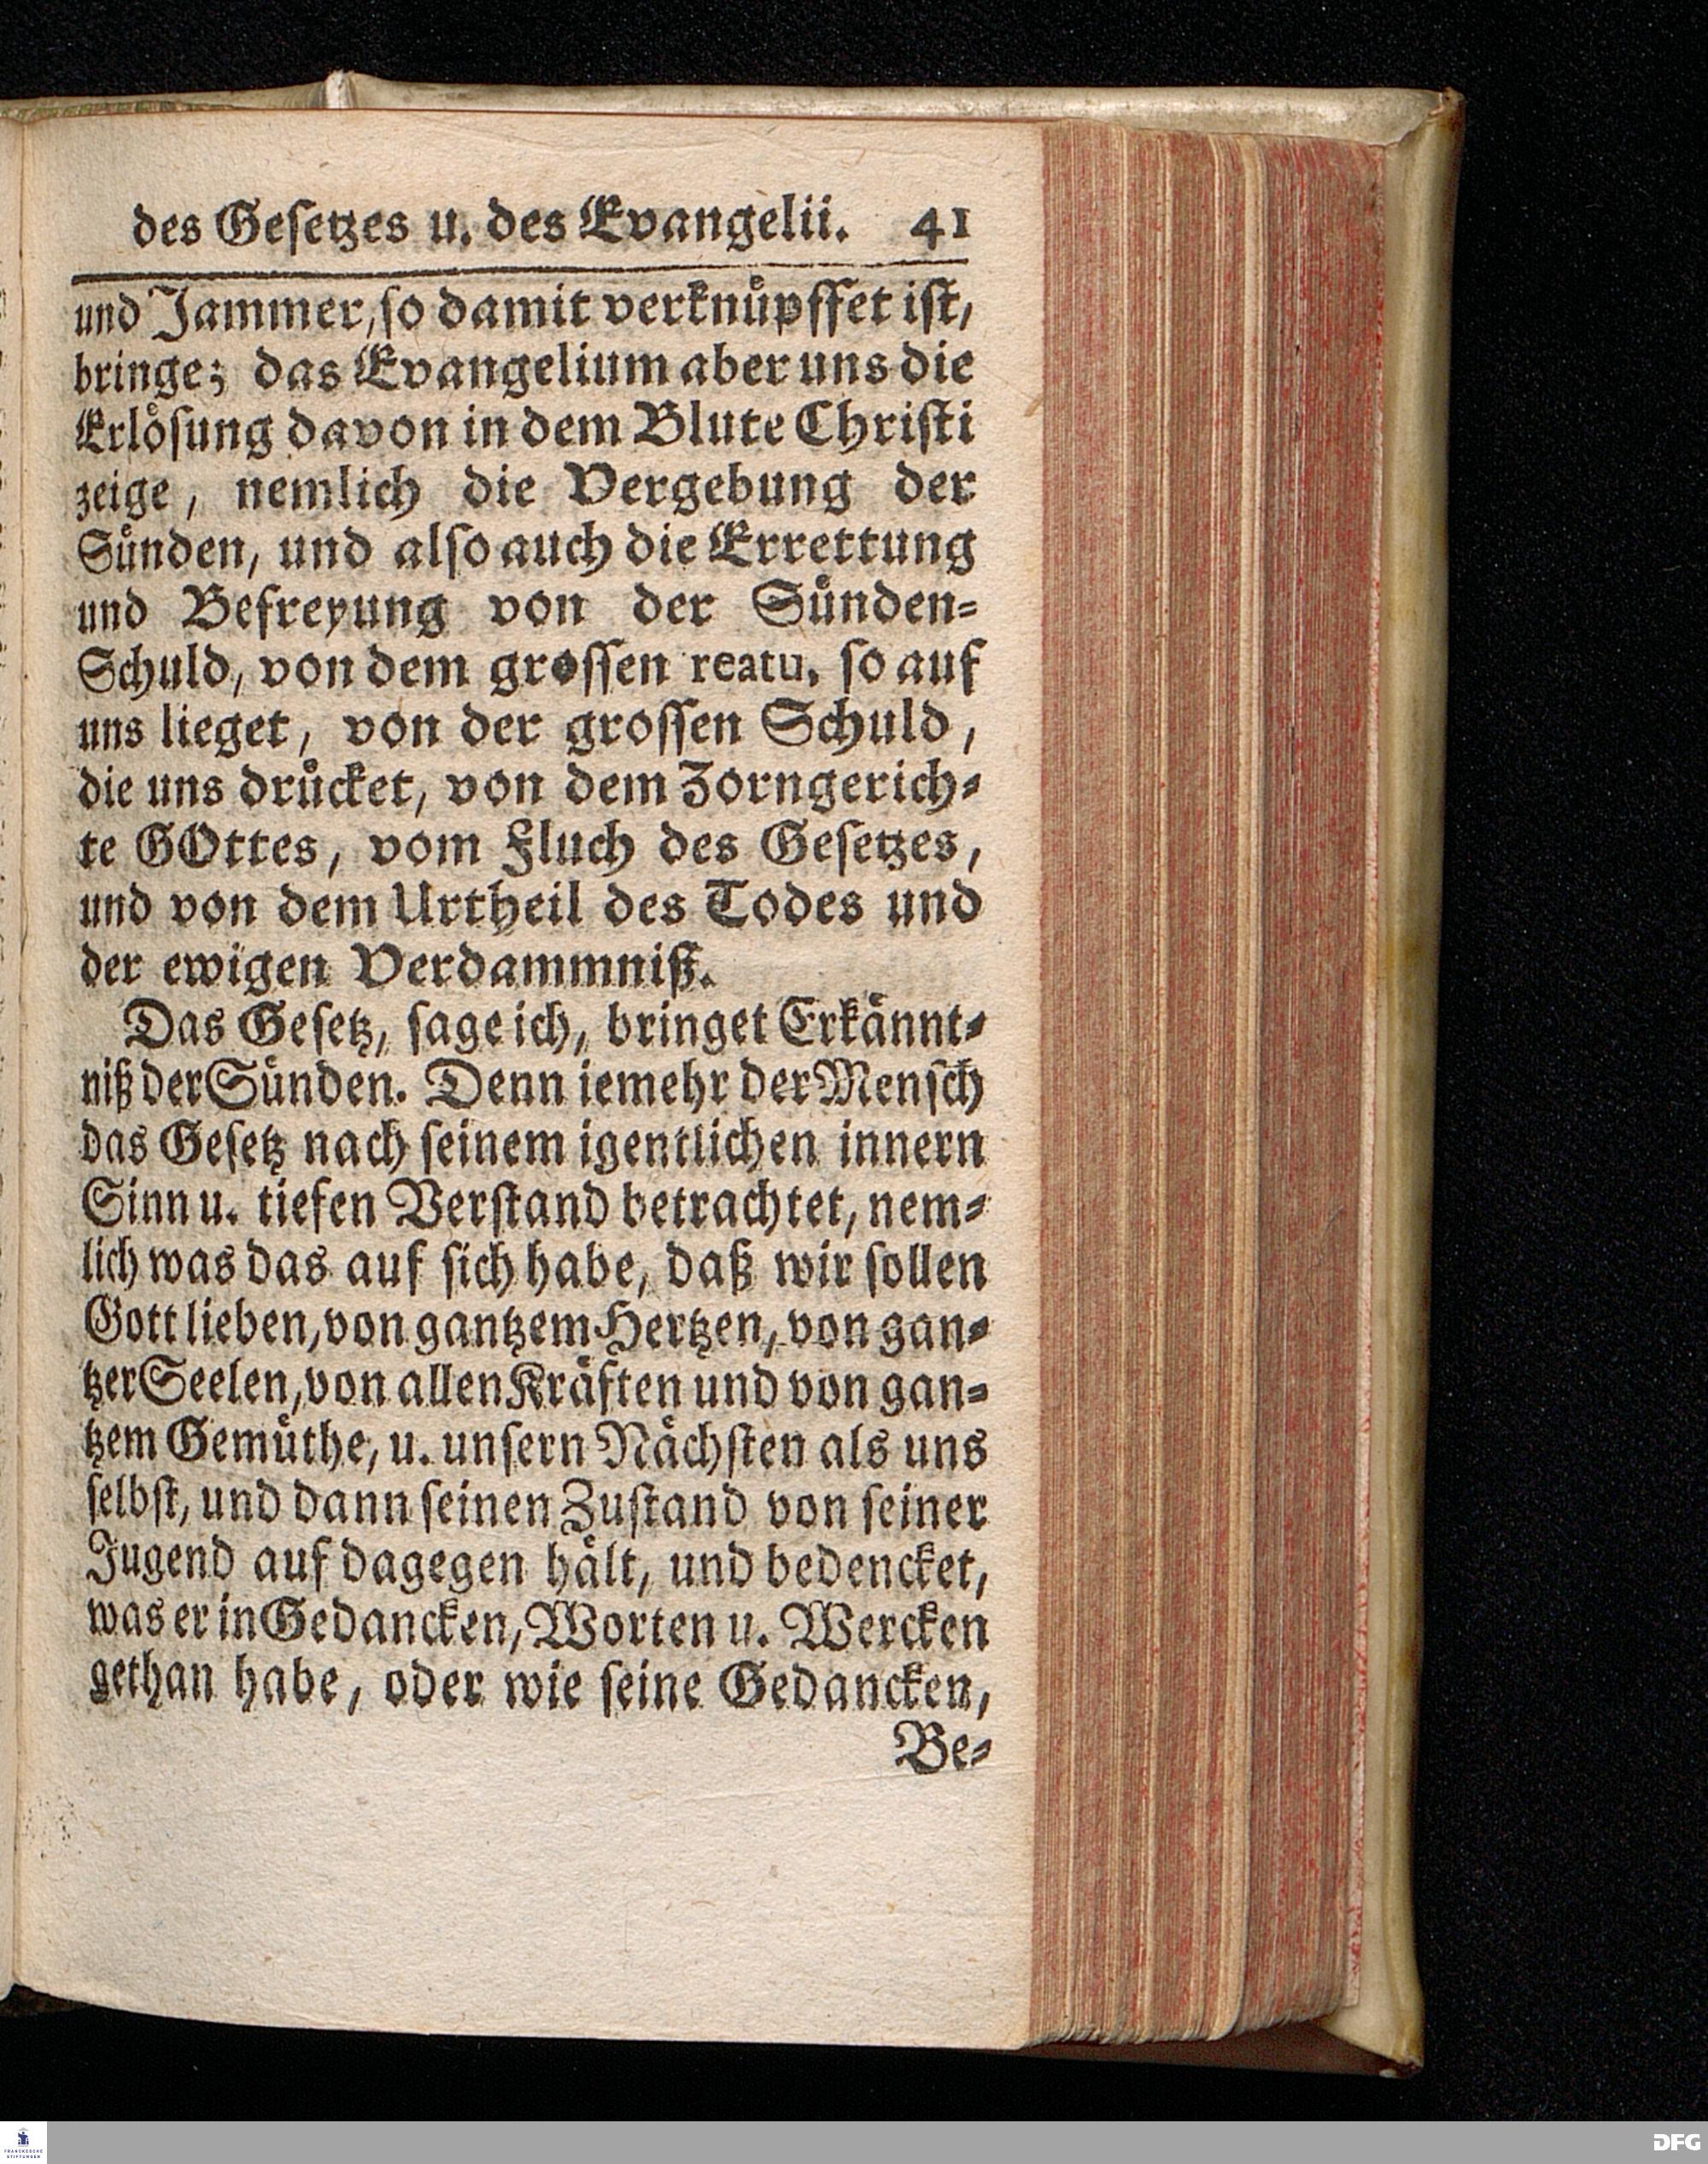 des Geſetzes u. des Evangelii. 41
und Jammer, ſo damit verknuͤpffet iſt,
bringe; das Evangelium aber uns die
Erloͤſung davon in dem Blute Chriſti
zeige, nemlich die Vergebung der
Suͤnden, und alſo auch die Errettung
und Befreyung von der Suͤnden-
Schuld, von dem groſſen reatu, ſo auf
uns lieget, von der groſſen Schuld,
die uns druͤcket, von dem Zorngerich-
te GOttes, vom Fluch des Geſetzes,
und von dem Urtheil des Todes und
der ewigen Verdammniß.
Das Geſetz, ſage ich, bringet Erkaͤnnt-
niß der Suͤnden. Denn iemehr der Menſch
das Geſetz nach ſeinem igentlichen innern
Sinn u. tiefen Verſtand betrachtet, nem-
lich was das auf ſich habe, daß wir ſollen
Gott lieben, von gantzem Hertzen, von gan-
tzer Seelen, von allen Kraͤften und von gan-
tzem Gemuͤthe, u. unſern Naͤchſten als uns
ſelbſt, und dann ſeinen Zuſtand von ſeiner
Jugend auf dagegen haͤlt, und bedencket,
was er in Gedancken, Worten u. Wercken
gethan habe, oder wie ſeine Gedancken,
Be-
FRANCKESCHE
STIFTUNGEN
DFG